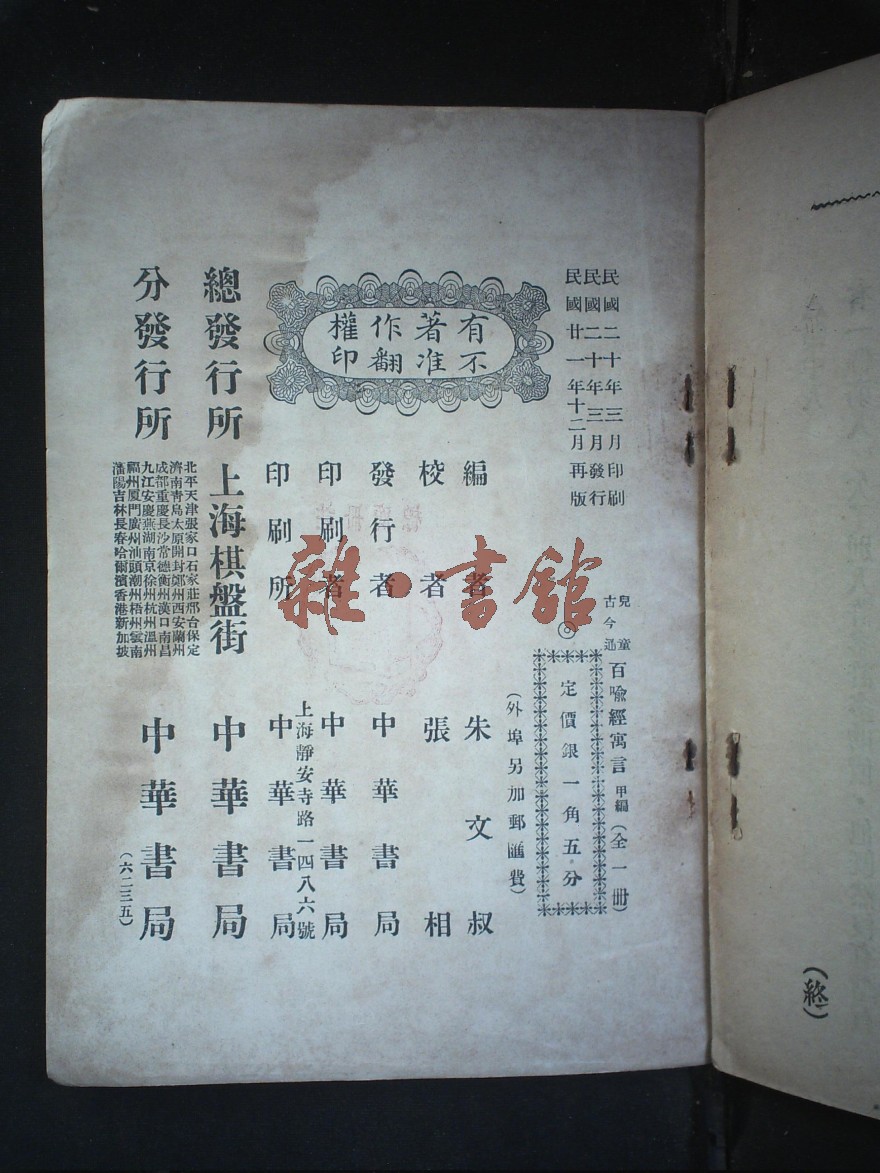 民國二十年三月印刷
民國二十年三月發行
民國廿一年十二月再版
兒童
古今通
百喩經寓言 甲編 (全一册)
◎
定價銀一角五分
(外埠另加郵匯費)
有不
著准
作翻
權印
編者 朱文叔
校者 張相
發行者 中華書局
印刷者 中華書局
上海靜安寺路一四八六號
印刷所 中華書局
總發行所 上海棋盤街 中華書局
分發行所
北平天津張家口石家莊邢台保定
濟南青島太原開封鄭州西安蘭州
成都重慶長沙常德衡州漢口南昌
九江安慶蕪湖南京徐州杭州溫州
福州厦門廣州汕頭潮州梧州雲南
瀋陽吉林長春哈爾濱香港新加坡
中華書局
(六二三五)
雜·書館
(終)